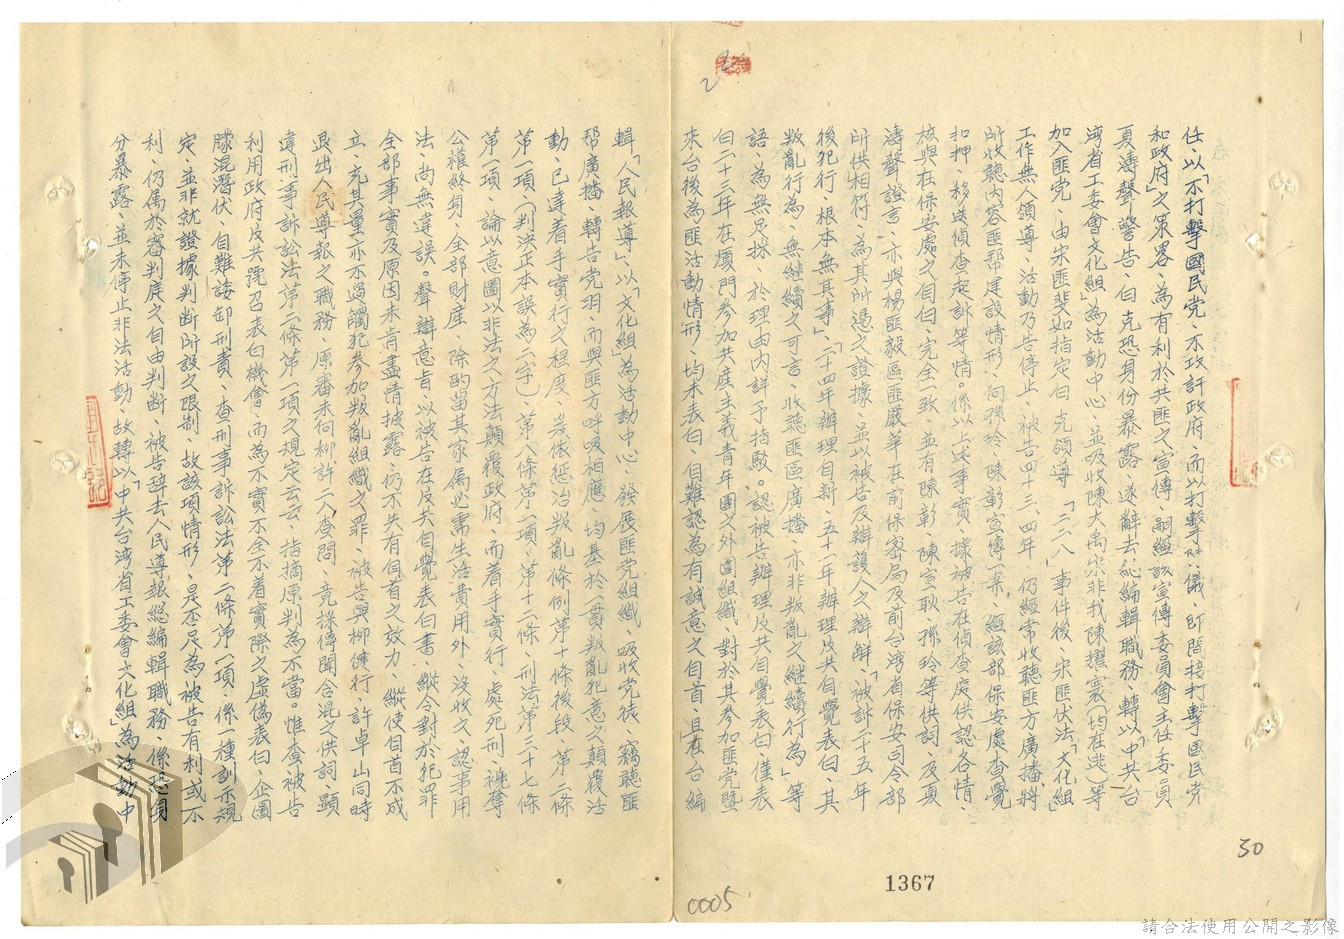 任、以「不打擊國民党、不政訐政府、而以打擊陳儀、即間接打擊國民党
和政府」之策畧、為有利於共匪之宣傳、嗣經該宣傳委員會主任委員
夏濤聲警告、曰克恐身份暴露、遂辭去総編輯職務、轉以「中共台
湾省工委會文化組」為活動中心、並吸收陳大禹宋非我陳耀寰(均在逃)等
加入匪党、由宋匪斐如指定曰克領導、「二二八」事件後、宋匪伏法、「文化組」
工作無人領導、活動乃告停止、被告四十三、四年、仍經常收聽匪方廣播、將
所收聽內容匪帮建設情形、向孫玲、陳彰宣傳一案、經該部保安處查覺
扣押、移送偵查起訴等情。係以上述事實、據被告在偵查庭供認各情、
核與在保安處之自白、完全一致、並有陳彰、陳宣耿、孫玲等供詞、及夏
濤聲證言、亦與楊匪毅區匪嚴華在前保密局及前台湾省保安司令部
所供相符、為其所憑之證據、並以被告及辯護人之辯解、「被訴二十五年
後犯行、根本無其事」、「二十四年辦理自新、五十一年辦理反共自覺表白、其
叛亂行為、無継續之可言、收聽匪區廣播、亦非叛亂之継續行為」等
語、為無足採、於理由內詳予指駁。認被告辦理反共自覺表白、僅表
白二十三年在廈門參加共產主義青年團之外圍組織、對於其參加匪党暨
來台後為匪活動情形、均未表白、自難認為有誠意之自首、且在台編
輯「人民報導」、以「文化組」為活動中心、發展匪党組織、吸收党徒、竊聽匪
帮廣播、轉告党羽、而與匪方呼吸相應、均基於一貫叛亂犯意之顛覆活
動、已達着手實行之程度、爰依惩治叛亂條例第十條後段、第二條
第一項、(判決正本誤為二字)、第八條第一項、第十二條、刑法第三十七條
第一項、論以意圖以非法之方法顛覆政府、而着手實行、處死刑、褫奪
公權終身、全部財産、除酌留其家属必需生活費用外、沒收之、認事用
法、尚無違誤。聲辯意旨、以被告在反共自覺表白書、縱令對於犯罪
全部事實及原因未肯盡情披露、仍不失有自首之效力、縱使自首不成
立、充其量亦不過觸犯參加叛亂組織之罪、被告與柳健行、許卓山同時
退出人民導報之職務、原審未向柳許二人查問、竟採傳聞含混之供詞、顯
違刑事訴訟法第二條第一項之規定云云、指摘原判為不當。惟查被告
利用政府反共號召表白機會、而為不實不全不着實際之虛偽表白、企圖
朦混潛伏、自難諉卸刑責、查刑事訴訟法第二條第一項、係一種訓示規
定、並非就證據判断所設之限制、故該項情形、是否足為被告有利或不
利、仍属於審判庭之自由判断、被告辞去人民導報総編輯職務、係恐身
分暴露、並未停止非法活動、故轉以「中共台湾省工委會文化組」為活動中
50
1367
0005
請合法使用公開之影像